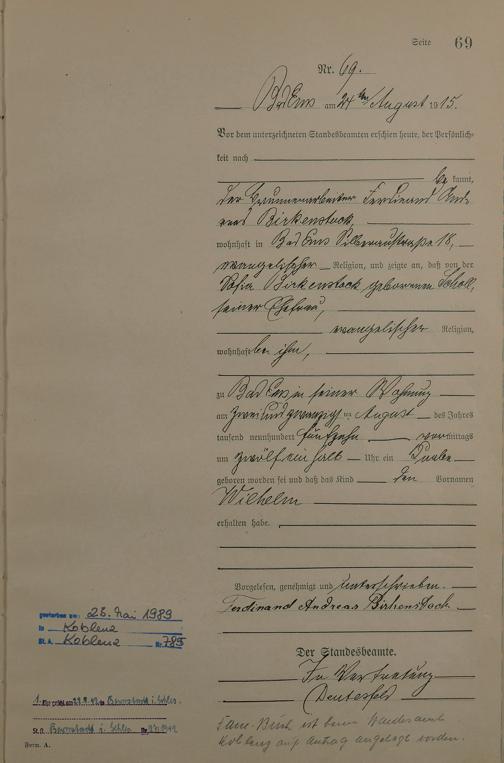 Seite 69
Nr. 69.
Bad Ems am 24ten August 1915.
Vor dem unterzeichneten Standesbeamten erschien heute, der Persönlich-
keit nach
bekannt,
der Brunnenarbeiter Ferdinand And-
reas Birkenstock,
wohnhaft in Bad Ems Silberaustraße 18,
evangelischer Religion, und zeigte an, daß von der
Sofia Birkenstock geborenen Scholl,
seiner Ehefrau,
evangelischer Religion,
wohnhaft bei ihm,
zu Bad Ems in seiner Wohnung
am zwei und zwanzigsten August des Jahres
tausend neunhundert fünfzehn vormittags
um zwölf ein halb Uhr ein Knabe
geboren worden sei und daß das Kind den Vornamen
Wilhelm
erhalten habe.
Vorgelesen, genehmigt und unterschrieben.
Ferdinand Andreas Birkenstock
Der Standesbeamte.
In Vertretung
gestorben am: 28. Mai 1989
in Koblenz
St. A. Koblenz Nr. 785
1. Ehe
St. A. i. Schles.
Fam.-Buch ist beim Standesamt
auf Antrag angelegt worden.
Form. A.